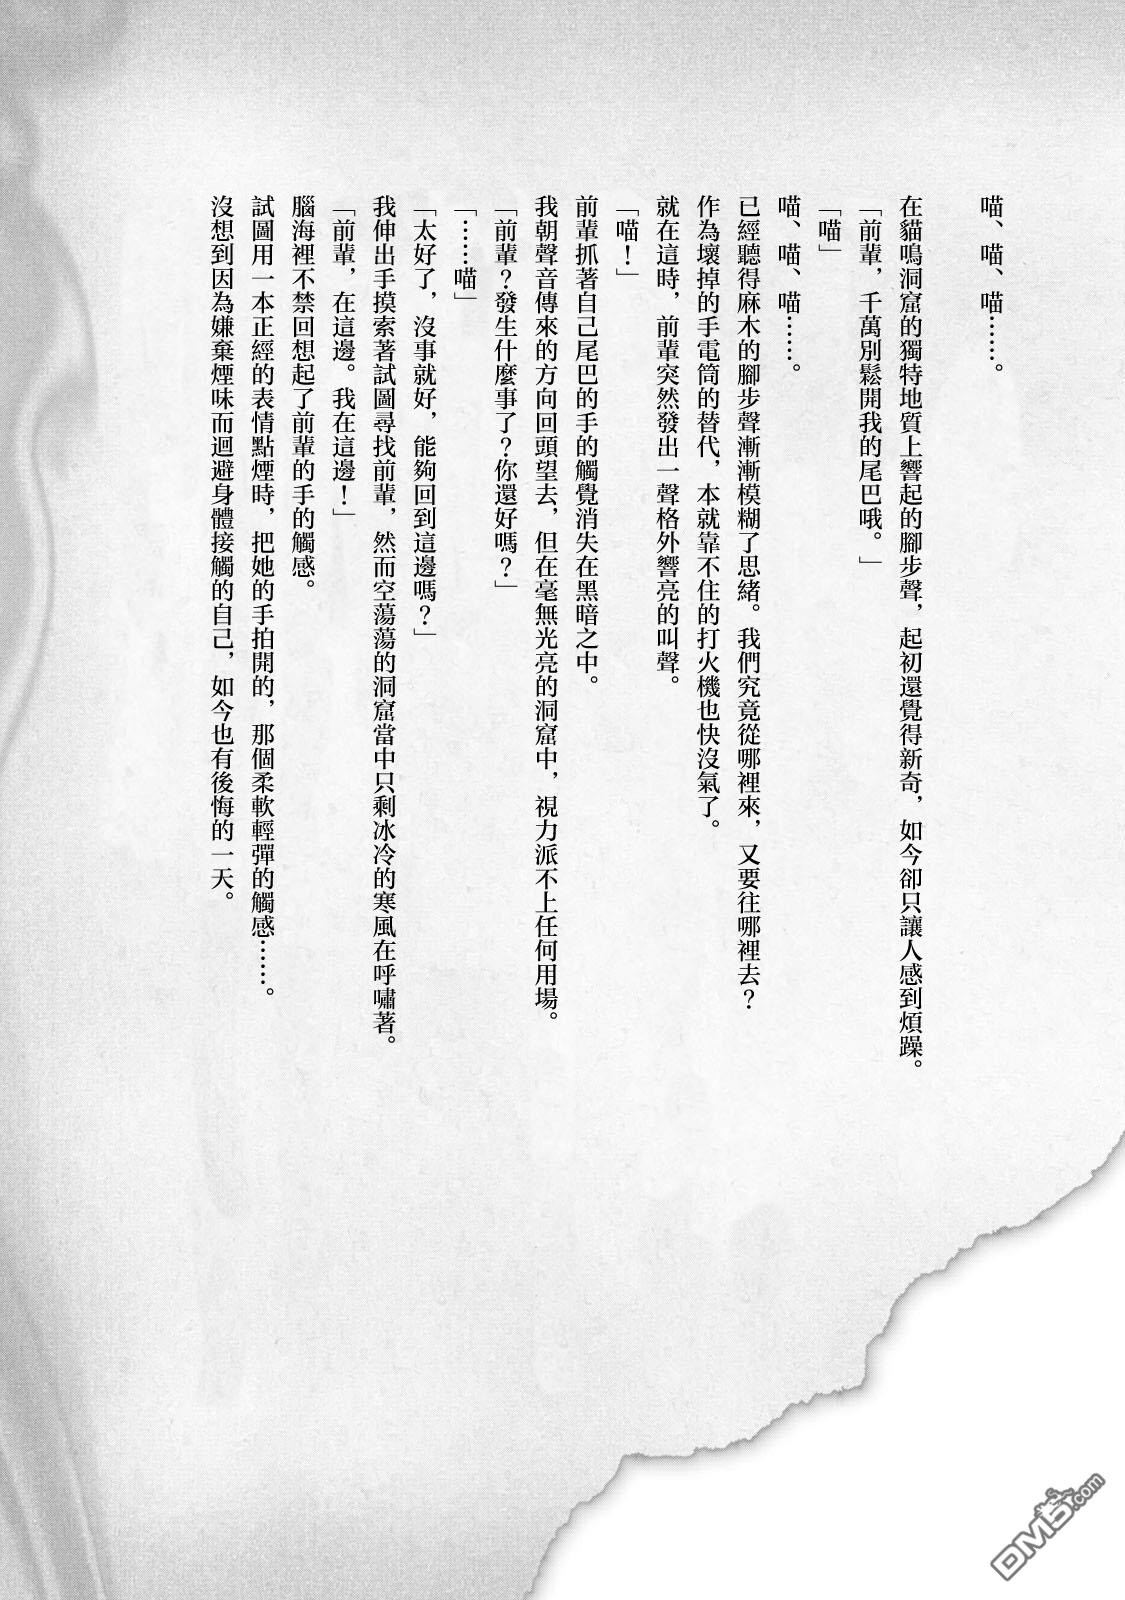 喵、喵、喵……。
在貓鳴洞窟的獨特地質上響起的腳步聲，起初還覺得新奇，如今卻只讓人感到煩躁。
「前輩，千萬別鬆開我的尾巴哦。」
「喵」
喵、喵、喵……。
已經聽得麻木的腳步聲漸漸模糊了思緒。我們究竟從哪裡來，又要往哪裡去？
作為壞掉的手電筒的替代，本就靠不住的打火機也快沒氣了。
就在這時，前輩突然發出一聲格外響亮的叫聲。
「喵！」
前輩抓著自己尾巴的手的觸覺消失在黑暗之中。
我朝聲音傳來的方向回頭望去，但在毫無光亮的洞窟中，視力派不上任何用場。
「前輩？發生什麼事了？你還好嗎？」
「……喵」
「太好了，沒事就好，能夠回到這邊嗎？」
我伸出手摸索著試圖尋找前輩，然而空蕩蕩的洞窟當中只剩冰冷的寒風在呼嘯著。
「前輩，在這邊。我在這邊！」
腦海裡不禁回想起了前輩的手的觸感。
試圖用一本正經的表情點煙時，把她的手拍開的，那個柔軟輕彈的觸感……。
沒想到因為嫌棄煙味而迴避身體接觸的自己，如今也有後悔的一天。
DM5.com